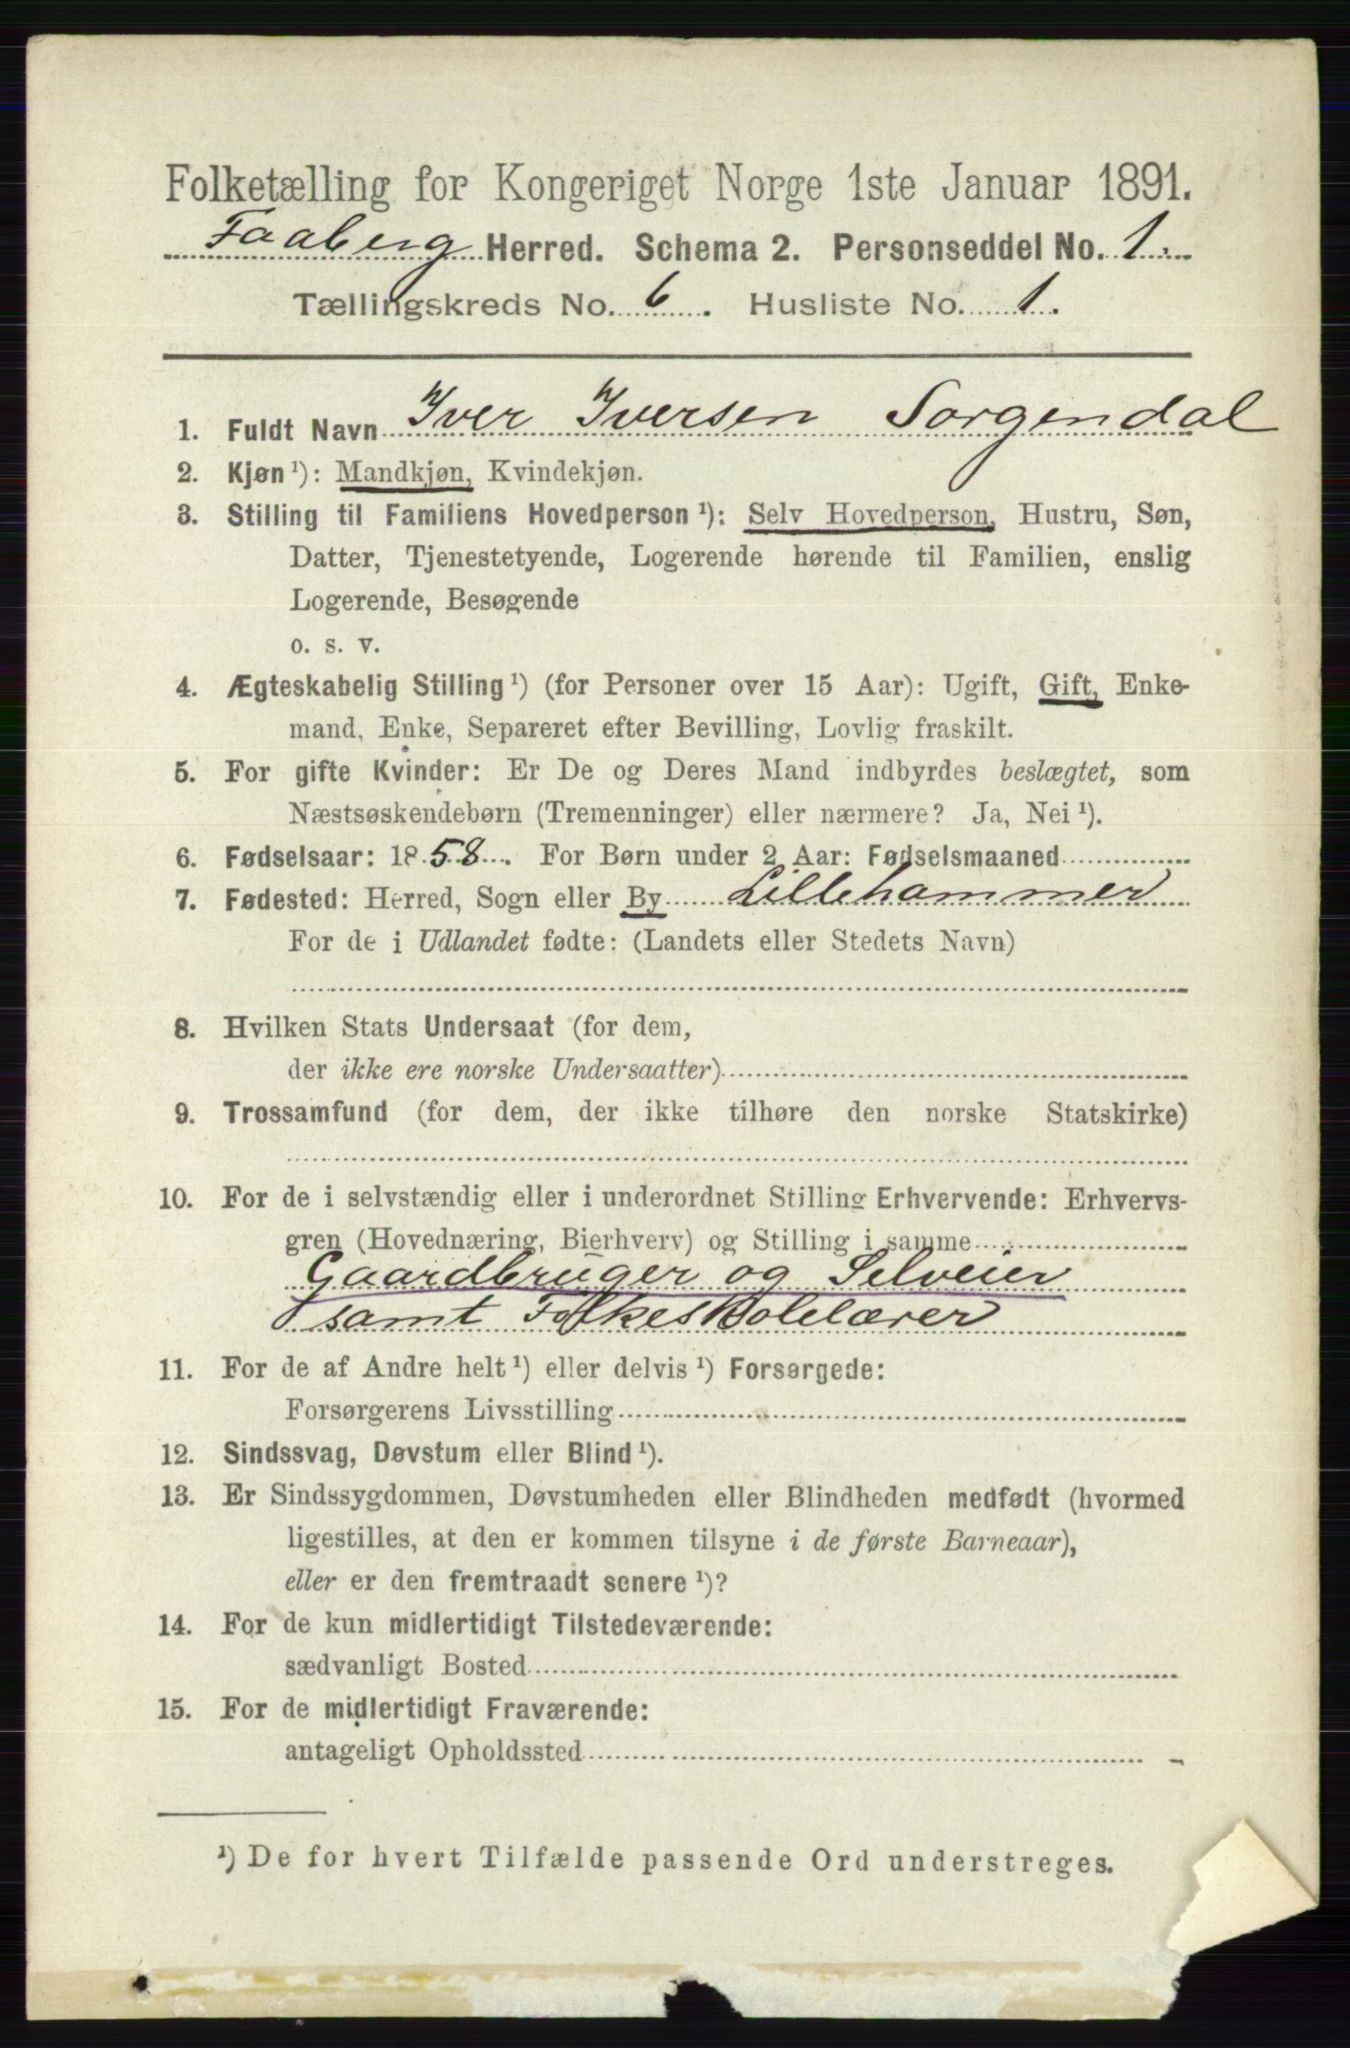 Folketælling for Kongeriget Norge 1ste Januar 1891.
Faaberg Herred. Schema 2. Personseddel No. 1.
Tællingskreds No. 6. Husliste No. 1.
1. Fuldt Navn Iver Iversen Sorgendal
2. Kjøn ¹): Mandkjøn, Kvindekjøn.
3. Stilling til Familiens Hovedperson ¹): Selv Hovedperson, Hustru, Søn,
Datter, Tjenestetyende, Logerende hørende til Familien, enslig
Logerende, Besøgende
o. s. v.
4. Ægteskabelig Stilling ¹) (for Personer over 15 Aar): Ugift, Gift, Enke-
mand, Enke, Separeret efter Bevilling, Lovlig fraskilt.
5. For gifte Kvinder: Er De og Deres Mand indbyrdes beslægtet, som
Næstsøskendebørn (Tremenninger) eller nærmere? Ja, Nei ¹).
6. Fødselsaar: 1858. For Børn under 2 Aar: Fødselsmaaned
7. Fødested: Herred, Sogn eller By Lillehammer
For de i Udlandet fødte: (Landets eller Stedets Navn)
8. Hvilken Stats Undersaat (for dem,
der ikke ere norske Undersaatter)
9. Trossamfund (for dem, der ikke tilhøre den norske Statskirke)
10. For de i selvstændig eller i underordnet Stilling Erhvervende: Erhvervs-
gren (Hovednæring, Bierhverv) og Stilling i samme
Gaardbruger og Selveier
samt Folkeskolelærer
11. For de af Andre helt ¹) eller delvis ¹) Forsørgede:
Forsørgerens Livsstilling
12. Sindssvag, Døvstum eller Blind ¹).
13. Er Sindssygdommen, Døvstumheden eller Blindheden medfødt (hvormed
ligestilles, at den er kommen tilsyne i de første Barneaar),
eller er den fremtraadt senere ¹)?
14. For de kun midlertidigt Tilstedeværende:
sædvanligt Bosted
15. For de midlertidigt Fraværende:
antageligt Opholdssted
¹) De for hvert Tilfælde passende Ord understreges.